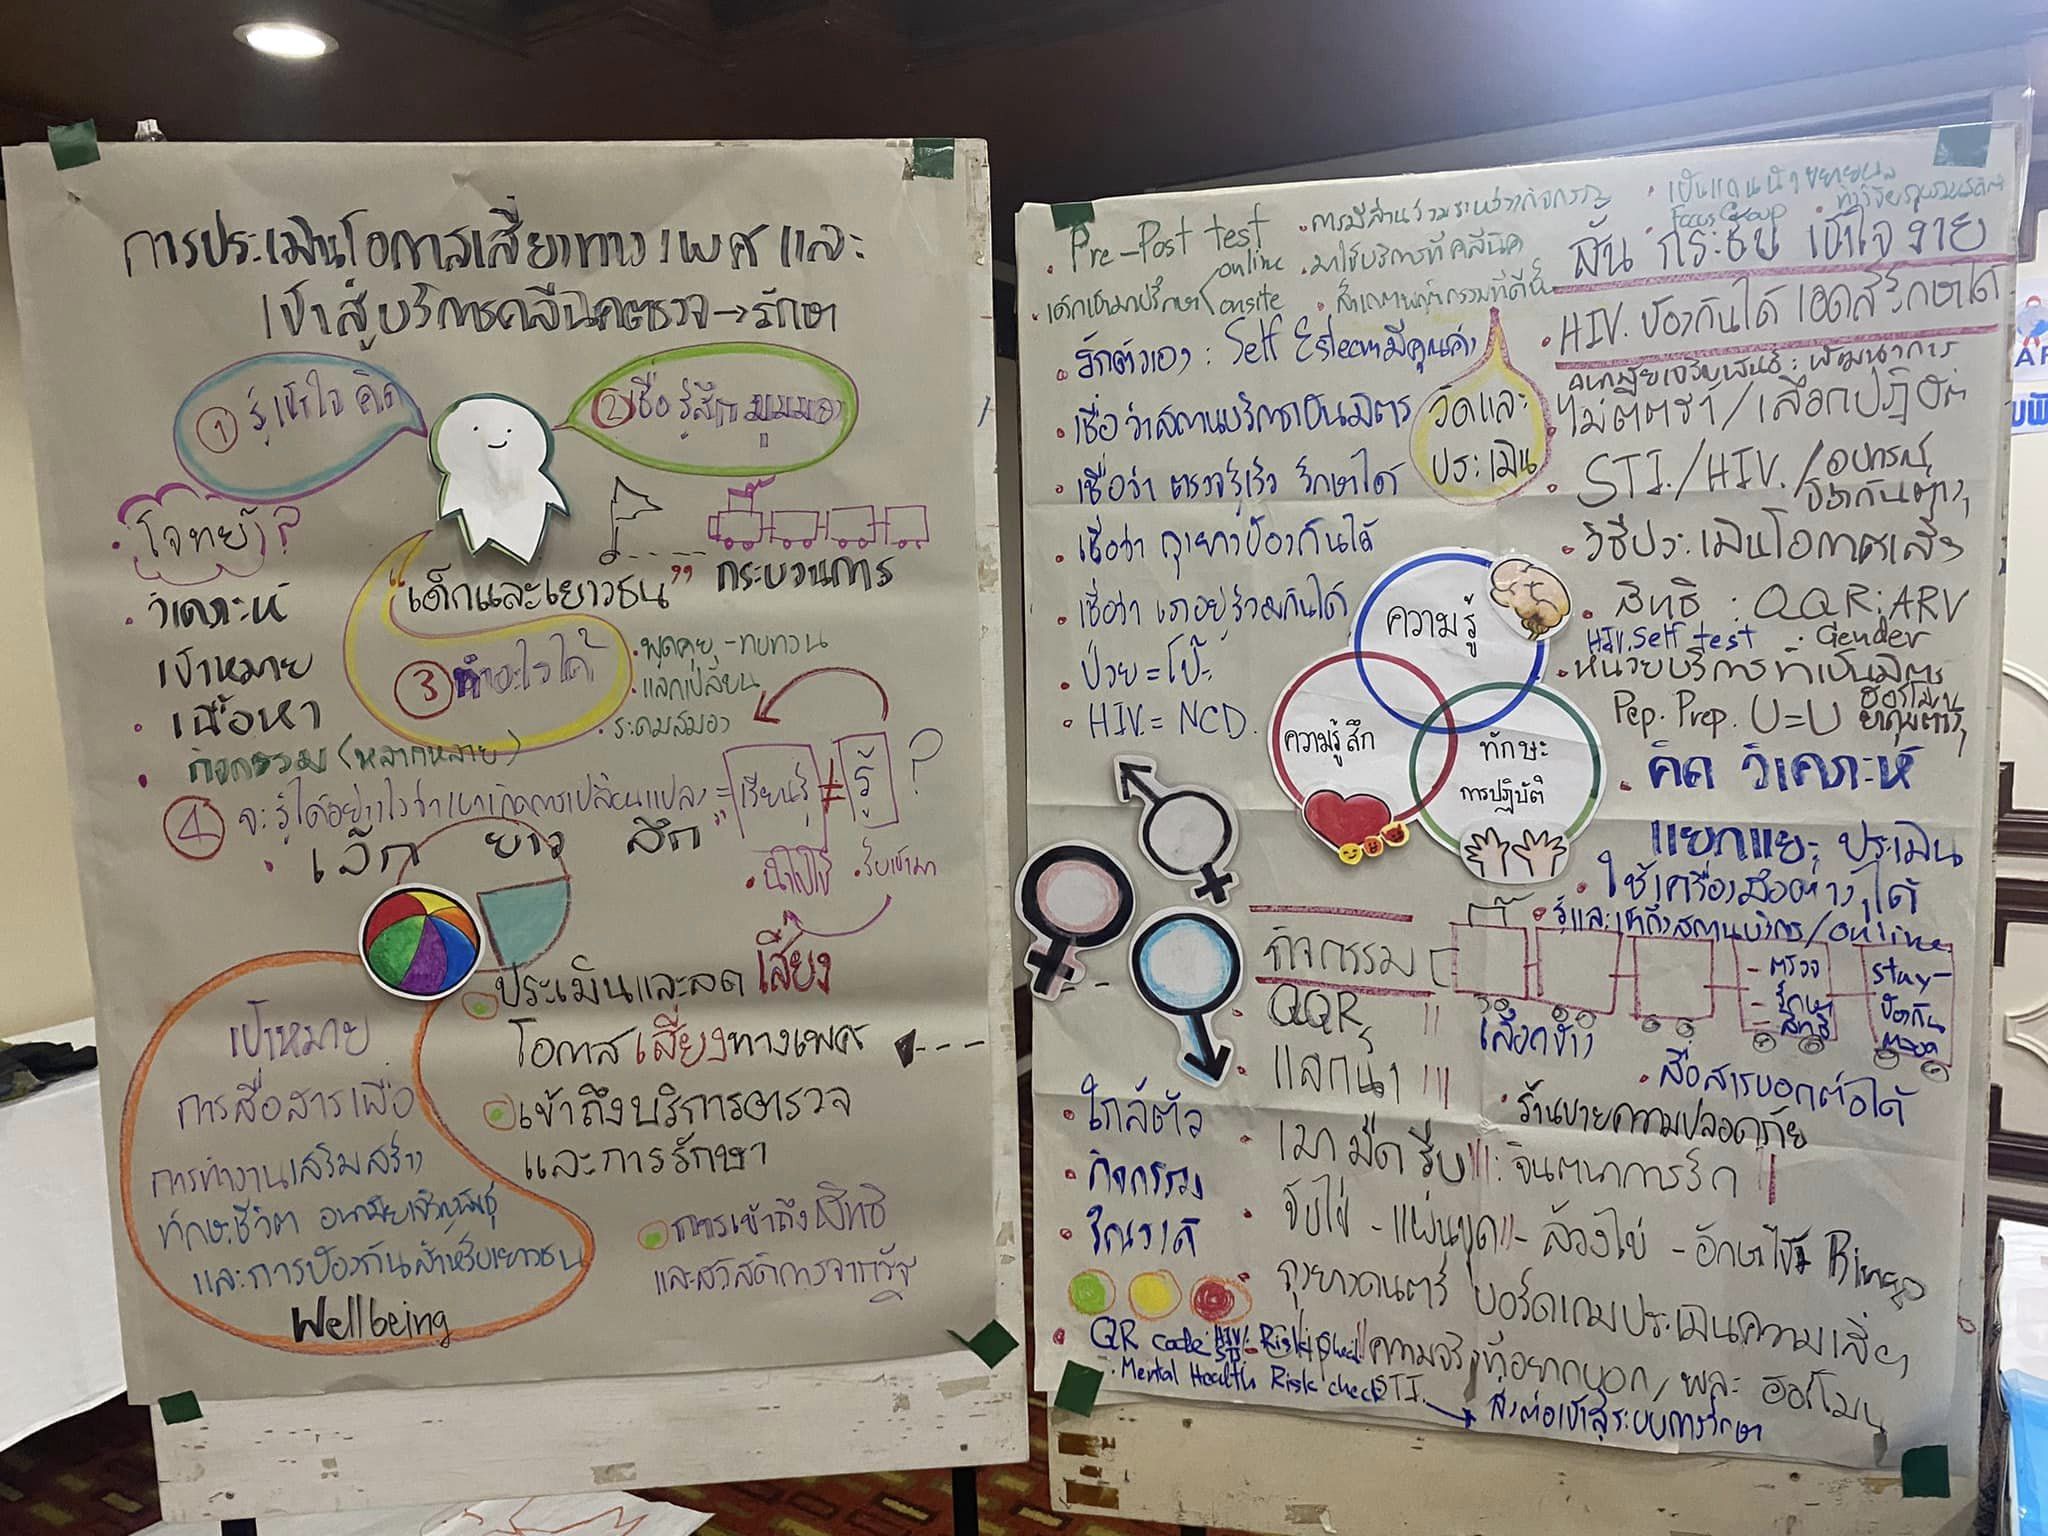 การประเมินโอกาสเสี่ยงทางเพศ และ
เข้าสู่บริการคลีนิคตรวจ→รักษา
① รู้ เข้าใจ คิด
② เชื่อ รู้สึก มุมมอง
โจทย์?
"เด็กและเยาวชน"
กระบวนการ
วิเคราะห์
เป้าหมาย
เนื้อหา
กิจกรรม (หลากหลาย)
③ ทำอะไรได้
พูดคุย - ทบทวน
แลกเปลี่ยน
ระดมสมอง
④ จะรู้ได้อย่างไรว่าเขาเกิดการเปลี่ยนแปลง = เรียนรู้ ≠ รู้ ?
เล็ก ยาว ลึก
นำไปใช้
รับเข้ามา
ประเมินและลด เสี่ยง
โอกาสเสี่ยงทางเพศ
เข้าถึงบริการตรวจ
และการรักษา
การเข้าถึงสิทธิ
และสวัสดิการจากรัฐ
เป้าหมาย
การสื่อสารเพื่อ
การทำงานเสริมสร้าง
ทักษะชีวิต อนามัยเจริญพันธุ์
และการป้องกันสำหรับเยาวชน
Wellbeing
Pre-Post test
online
onsite
เด็กเข้ามาปรึกษา
การมีส่วนร่วมระหว่างกิจกรรม
มาใช้บริการที่คลีนิค
สังเกตพฤติกรรมที่ดีขึ้น
Focus Group
รักตัวเอง : Self Esteem มีคุณค่า
เชื่อว่าสถานบริการเป็นมิตร
เชื่อว่า ตรวจรู้เร็ว รักษาได้
เชื่อว่า ถุงยางป้องกันได้
เชื่อว่า เราอยู่ร่วมกันได้
ป่วย = โป๊ะ
HIV = NCD
วัดและ
ประเมิน
สั้น กระชับ เข้าใจง่าย
HIV. ป้องกันได้ เอดส์รักษาได้
อนามัยเจริญพันธุ์ : พัฒนาการ
ไม่ตีตรา / เลือกปฏิบัติ
STI. / HIV. / อุปกรณ์
ป้องกันต่างๆ
วิธีประเมินโอกาสเสี่ยง
สิทธิ : QQR : ARV
HIV. Self test : Gender
หน่วยบริการที่เป็นมิตร
Pep. Prep. U=U ฮอร์โมน
คิด วิเคราะห์
แยกแยะ ประเมิน
ใช้เครื่องมือต่างๆ ได้
รู้และเข้าถึงสถานบริการ / online
ความรู้
ความรู้สึก
ทักษะ
การปฏิบัติ
กิจกรรม
- ตรวจ
- รักษา
- สิทธิ
Stay -
ป้องกัน
ตลอด
QQR
เลือกข้าง
แลกน้ำ
สื่อสารบอกต่อได้
ร้านขายความปลอดภัย
เมา มืด รีบ : จินตนาการรัก
จับไข่ - แผ่นพูด - ล้วงไข่ - อักษรไขว้ Bingo
ถุงยางดนตรี บอร์ดเกมประเมินความเสี่ยง
ใกล้ตัว
กิจกรรม
QR code HIV/STI - Risk
ความจริงที่อยากบอก, พละ ฮอร์โมน
Mental Health Risk check STI.
ส่งต่อเข้าสู่ระบบการรักษา